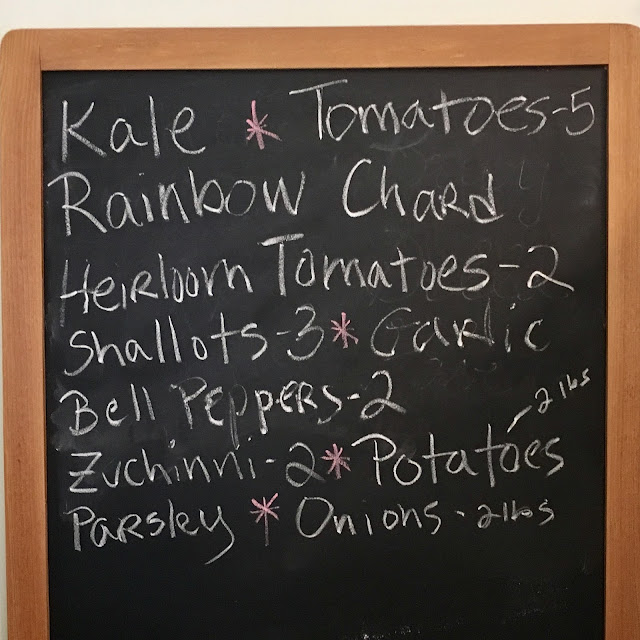 Kale * Tomatoes-5
Rainbow Chard
Heirloom Tomatoes-2
Shallots-3 * Garlic
Bell Peppers-2
2 lbs
Zuchinni-2 * Potatoes
Parsley * Onions - 2lbs